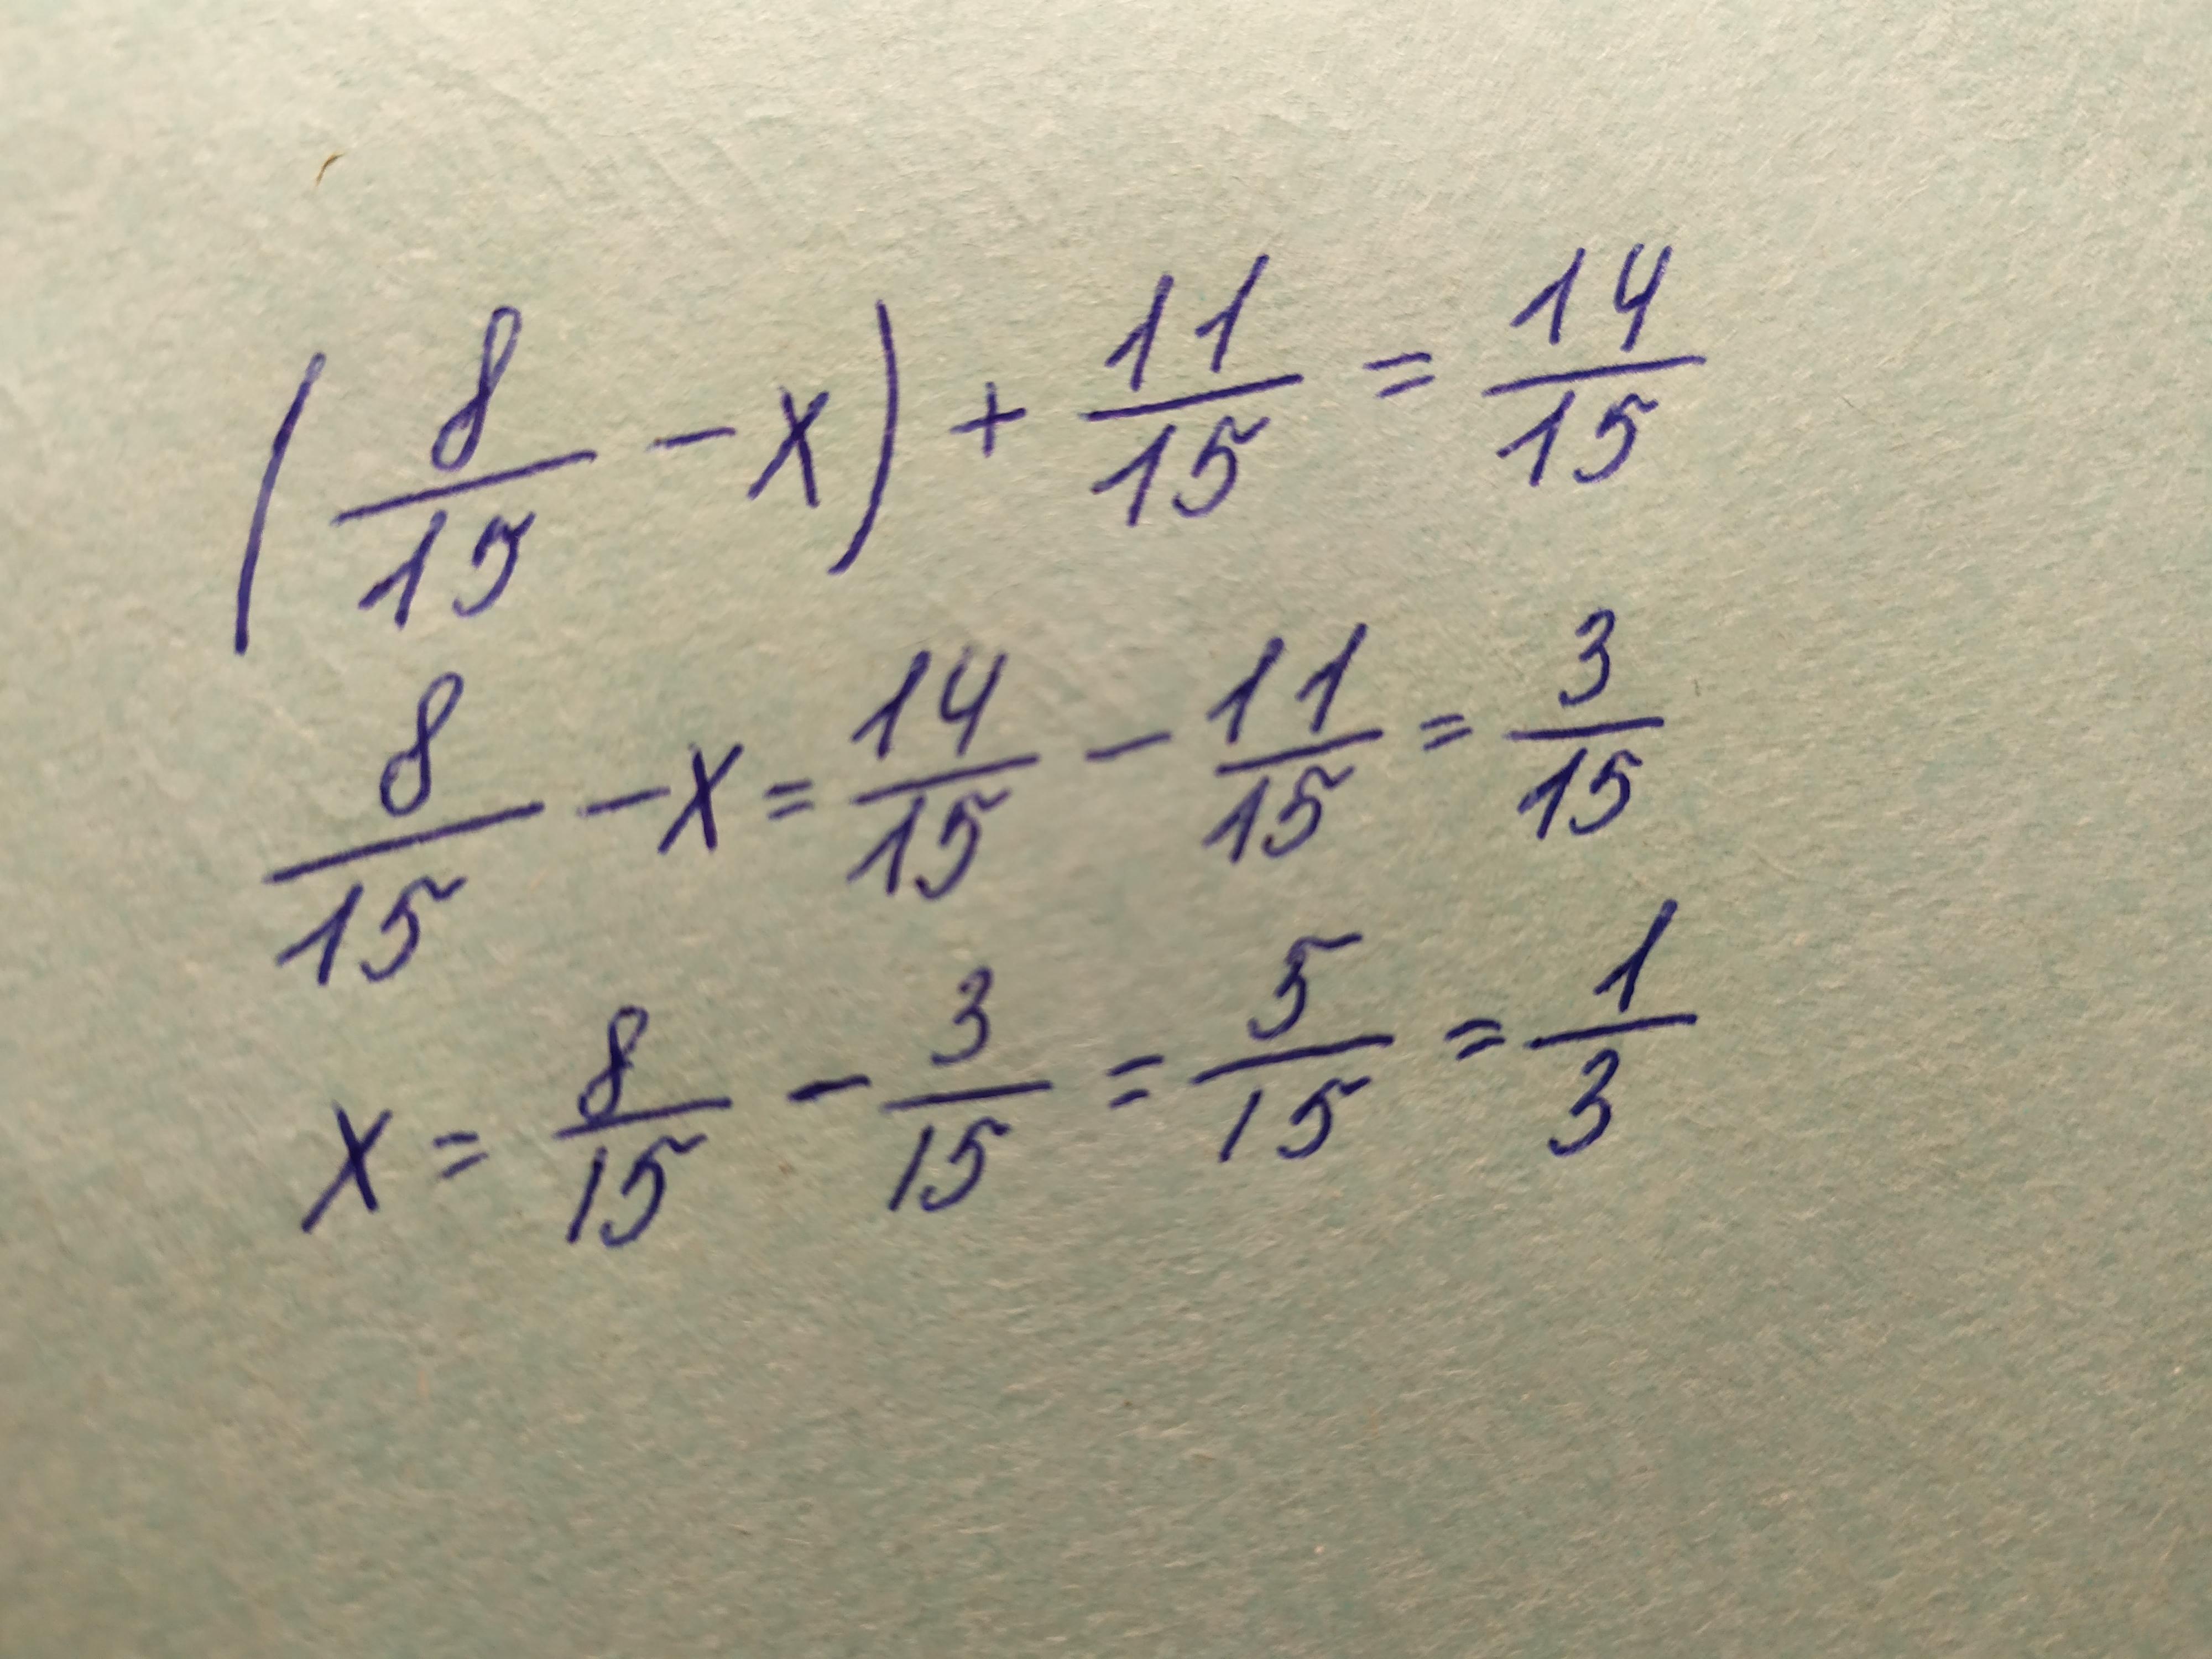 (8/15 - x) + 11/15 = 14/15
8/15 - x = 14/15 - 11/15 = 3/15
x = 8/15 - 3/15 = 5/15 = 1/3